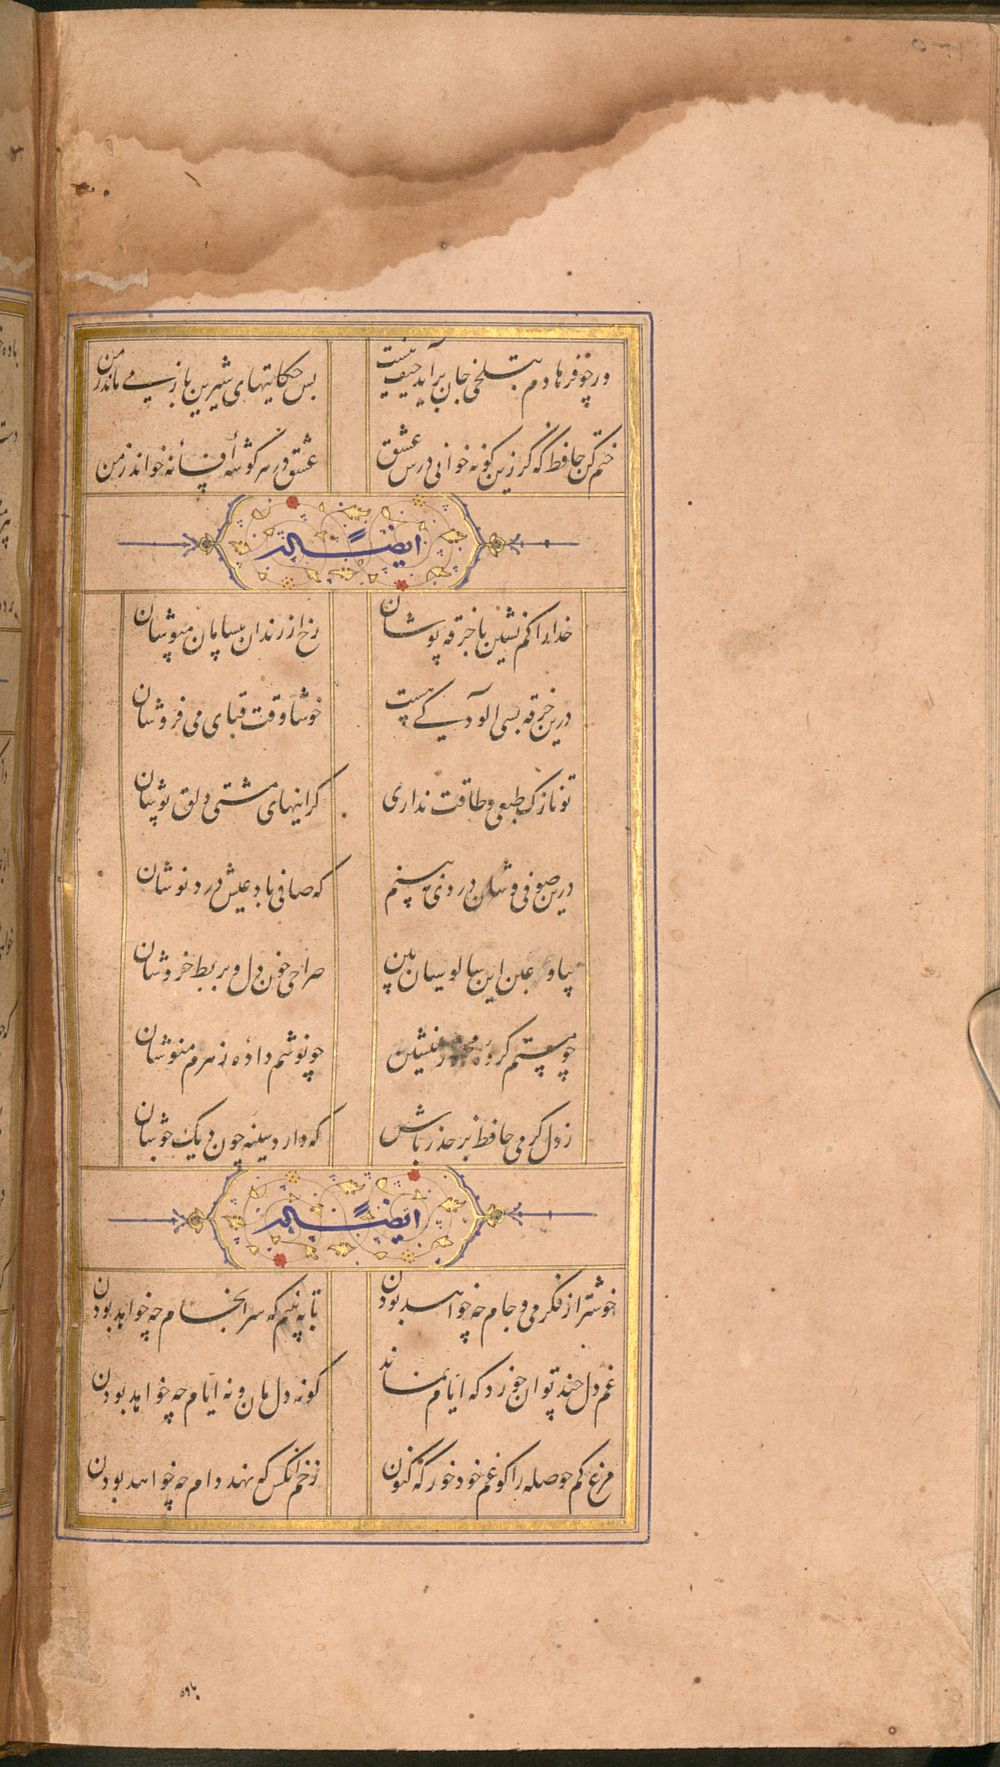 ور چو فرهادم بتلخی جان برآید حیف نیست بس حکایتهای شیرین باز می ماند ز من
ختم کن حافظ که گر زین گونه خوانی درس عشق عشق در هر گوشهٔ افسانهٔ خواند ز من
ایضاً له
خدا را کم نشین با خرقه پوشان رخ از رندان بی سامان مپوشان
درین خرقه بسی آلودگی هست خوشا وقت قبای می فروشان
تو نازک طبعی و طاقت نداری گرانیهای مشتی دلق پوشان
درین صوفی وشان دردی نبینم که صافی باد عیش دردنوشان
بیا وز غبن این سالوسیان بین صراحی خون دل و بربط خروشان
چو مستم کردهٔ منشین چو نوشم دادهٔ زهرم منوشان
ز دل گرمی حافظ بر حذر باش که دارد سینه چون دیک جوشان
ایضاً له
خوشتر از فکر می و جام چه خواهد بودن تا به بینم که سرانجام چه خواهد بودن
غم دل چند توان خورد که ایام نماند گو نه دل مان و نه ایام چه خواهد بودن
مرغ کم حوصله را گو غم خود خور که کنون زخم آنکس که نهد دام چه خواهد بودن
باده